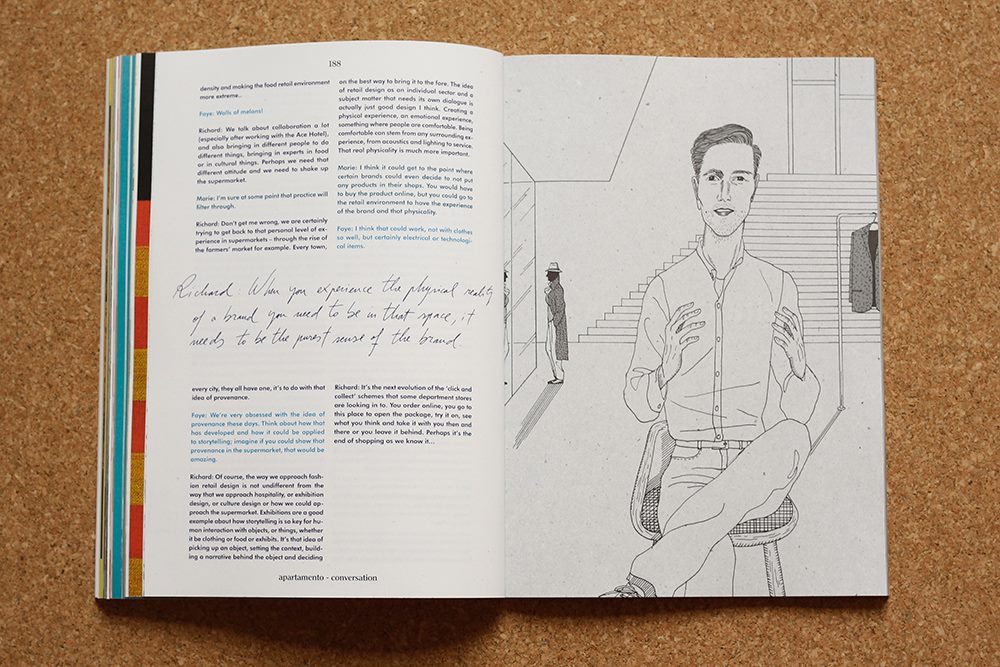 188
density and making the food retail environment
more extreme..
Faye: Walls of melons!
Richard: We talk about collaboration a lot
(especially after working with the Ace Hotel),
and also bringing in different people to do
different things, bringing in experts in food
or in cultural things. Perhaps we need that
different attitude and we need to shake up
the supermarket.
Marie: I'm sure at some point that practice will
filter through.
Richard: Don't get me wrong, we are certainly
trying to get back to that personal level of ex-
perience in supermarkets – through the rise of
the farmers' market for example. Every town,
on the best way to bring it to the fore. The idea
of retail design as an individual sector and a
subject matter that needs its own dialogue is
actually just good design I think. Creating a
physical experience, an emotional experience,
something where people are comfortable. Being
comfortable can stem from any surrounding ex-
perience, from acoustics and lighting to service.
That real physicality is much more important.
Marie: I think it could get to the point where
certain brands could even decide to not put
any products in their shops. You would have
to buy the product online, but you could go to
the retail environment to have the experience
of the brand and that physicality.
Foye: I think that could work, not with clothes
so well, but certainly electrical or technologi-
cal items.
Richard: When you experience the physical reality
of a brand you need to be in that space, it
needs to be the purest sense of the brand.
every city, they all have one, it's to do with that
idea of provenance.
Faye: We're very obsessed with the idea of
provenance these days. Think about how that
has developed and how it could be applied
to storytelling; imagine if you could show that
provenance in the supermarket, that would be
amazing.
Richard: Of course, the way we approach fash-
ion retail design is not undifferent from the
way that we approach hospitality, or exhibition
design, or culture design or how we could ap-
proach the supermarket. Exhibitions are a good
example about how storytelling is so key for hu-
man interaction with objects, or things, whether
it be clothing or food or exhibits. It's that idea of
picking up an object, setting the context, build-
ing a narrative behind the object and deciding
Richard: It's the next evolution of the 'click and
collect' schemes that some department stores
are looking in to. You order online, you go to
this place to open the package, try it on, see
what you think and take it with you then and
there or you leave it behind. Perhaps it's the
end of shopping as we know it...
apartamento - conversation